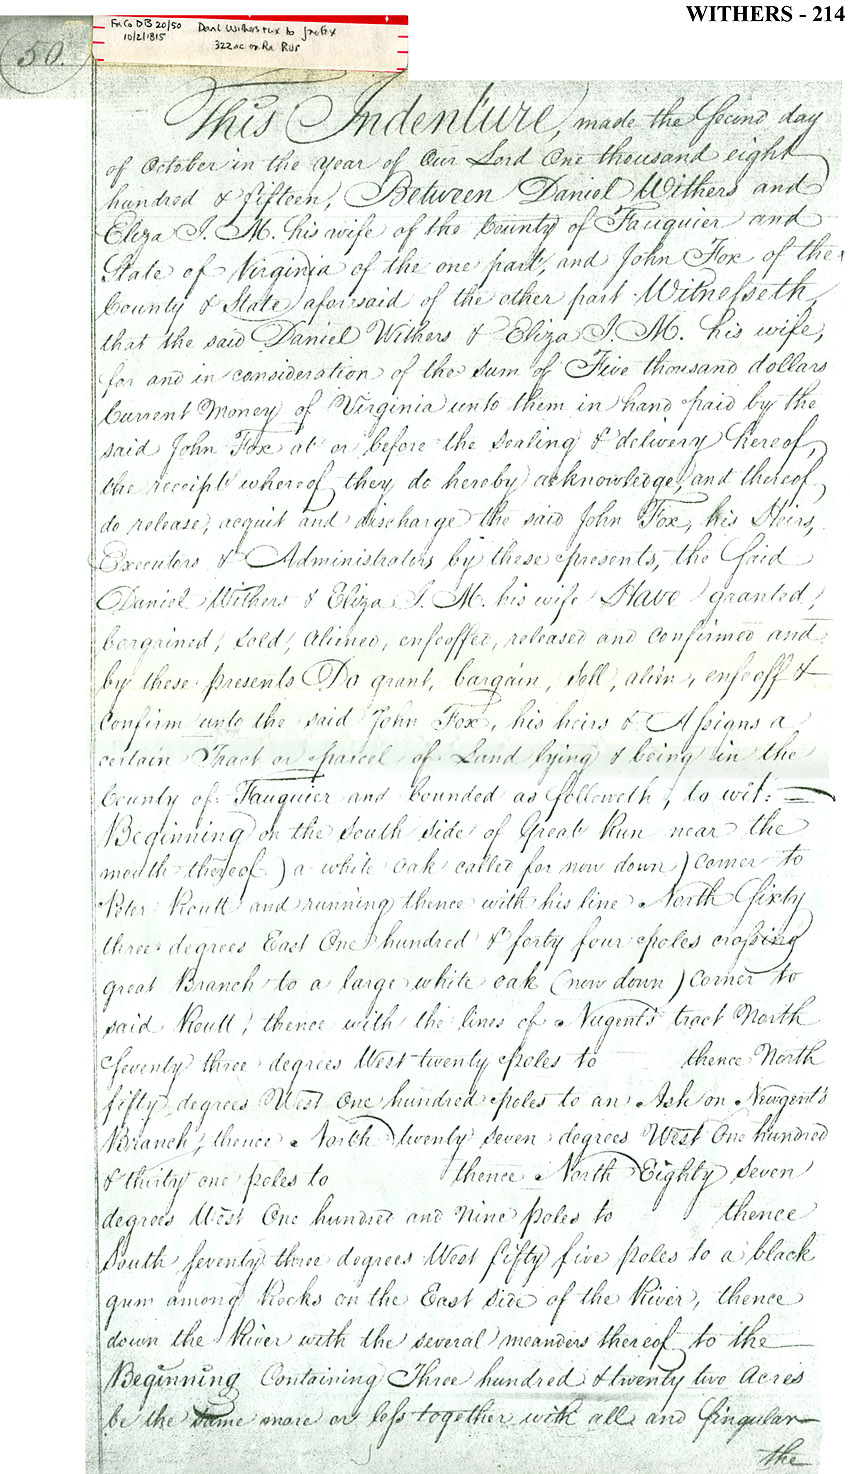 WITHERS - 214
Fa Co DB 20/50 Danl Withers + ux to Jno Fox
10/2/1815 322 ac on Ra Rvr
50.
This Indenture, made the Second day
of October in the year of Our Lord One thousand eight
hundred & fifteen, Between Daniel Withers and
Eliza I. M. his wife of the County of Fauquier and
State of Virginia of the one part, and John Fox of the
County & State aforsaid of the other part Witnesseth,
that the said Daniel Withers & Eliza I. M. his wife,
for and in consideration of the sum of Five thousand dollars
Current Money of Virginia unto them in hand paid by the
said John Fox at or before the sealing & delivery hereof,
the receipt whereof they do hereby acknowledge, and thereof
do release, acquit and discharge the said John Fox, his Heirs,
Executors & Administrators by these presents, the said
Daniel Withers & Eliza I. M. his wife Have granted,
bargained, sold, aliened, enfeoffed, released and confirmed and
by these presents Do grant, bargain, sell, alien, enfeoff &
confirm unto the said John Fox, his heirs & Assigns a
certain Tract or parcel of Land lying & being in the
County of Fauquier and bounded as followeth, to wit:
Beginning on the South side of Great Run near the
mouth thereof) a white oak called for now down) corner to
Peter Routt and running thence with his line North Sixty
three degrees East One hundred & forty four poles crossing
great Branch to a large white oak (now down) corner to
said Routt, thence with the lines of Nugent's tract North
Seventy three degrees West twenty poles to thence North
fifty degrees West One hundred poles to an Ash on Newgent's
Branch, thence North twenty seven degrees West One hundred
& thirty one poles to thence North Eighty seven
degrees West One hundred and Nine poles to thence
South seventy three degrees West fifty five poles to a black
gum among Rocks on the East side of the River, thence
down the River with the several meanders thereof to the
Beginning Containing Three hundred & twenty two Acres
be the same more or less together with all and Singular
the